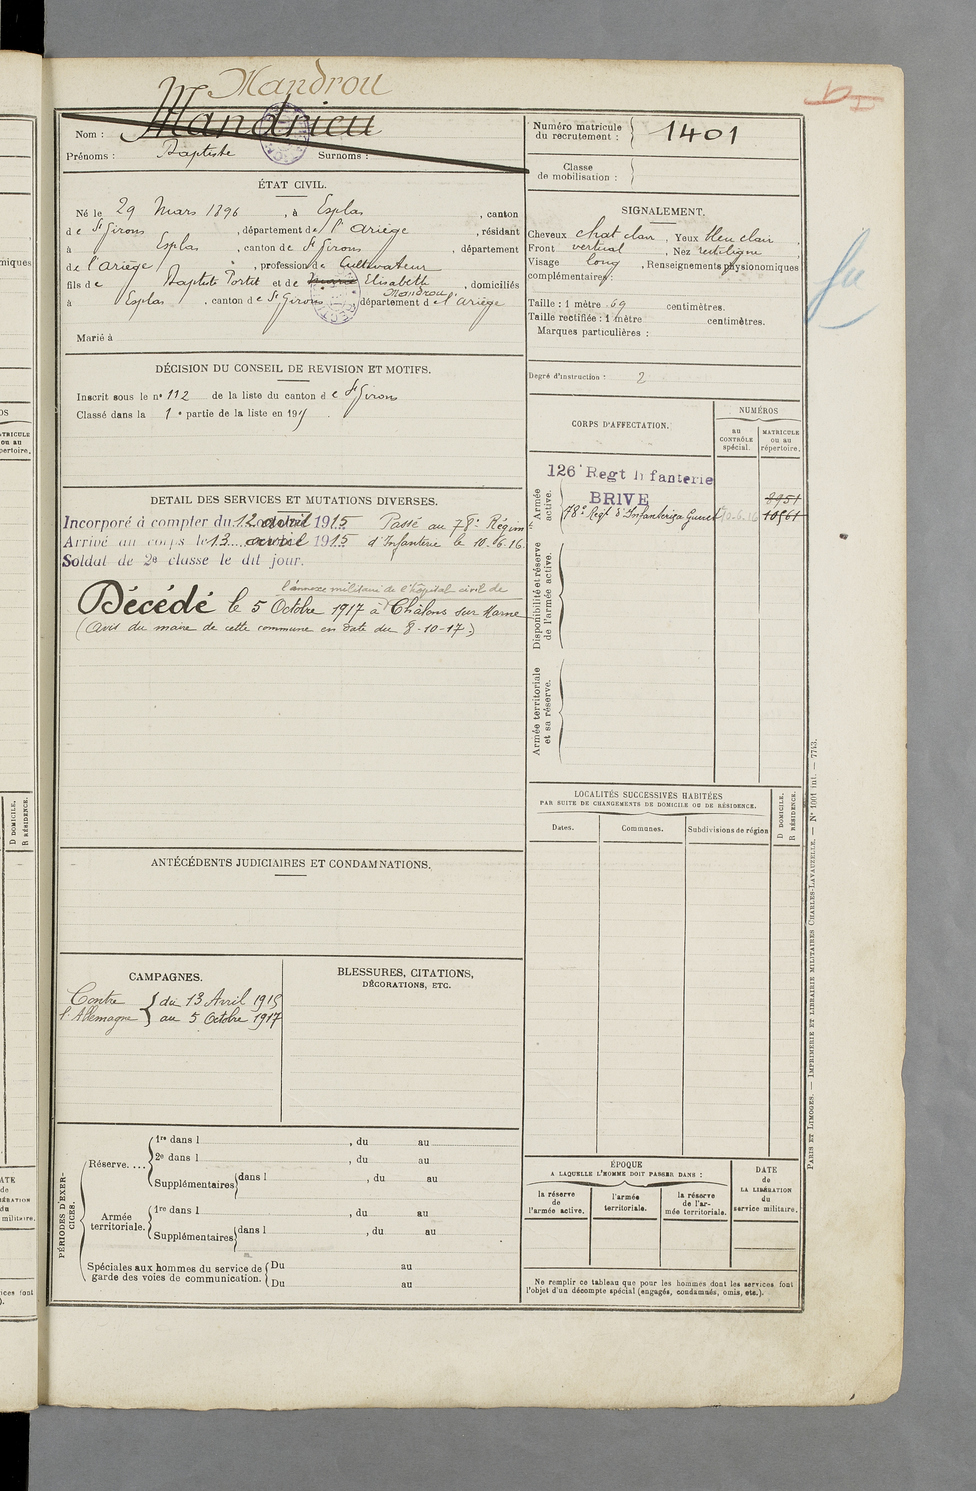 Mandrou
Nom : Mandrieu
Prénoms : Baptiste Surnoms :
ÉTAT CIVIL.
Né le 29 Mars 1896, à Esplas, canton
de St Girons, département de l'Ariège, résidant
à Esplas, canton de St Girons, département
de l'Ariège, profession de Cultivateur
fils de Baptiste Portet et de Elisabeth, domiciliés
Mandrou
à Esplas, canton de St Girons département de l'Ariège
Marié à
DÉCISION DU CONSEIL DE REVISION ET MOTIFS.
Inscrit sous le nº 112 de la liste du canton de St Girons
Classé dans la 1e partie de la liste en 191
DETAIL DES SERVICES ET MUTATIONS DIVERSES.
Incorporé à compter du 12 avril 1915 Passé au 78e Régim t
Arrivé au corps le 13 avril 1915 d'Infanterie le 10.6.16.
Soldat de 2e classe le dit jour.
l'annexe militaire de l'hôpital civil de
Décédé le 5 Octobre 1917 à Châlons sur Marne
(Avis du maire de cette commune en date du 8-10-17.)
ANTÉCÉDENTS JUDICIAIRES ET CONDAMNATIONS.
CAMPAGNES.
Contre l'Allemagne { du 13 Avril 1915
au 5 Octobre 1917
BLESSURES, CITATIONS,
DÉCORATIONS, ETC.
PÉRIODES D'EXERCICES.
Réserve.... 1re dans l , du au
2e dans l , du au
Supplémentaires dans l , du au
Armée territoriale. 1re dans l , du au
Supplémentaires dans l , du au
Spéciales aux hommes du service de garde des voies de communication. Du au
Du au
Numéro matricule du recrutement : 1401
Classe de mobilisation :
SIGNALEMENT.
Cheveux chat clair, Yeux bleu clair,
Front vertical, Nez rectiligne,
Visage long, Renseignements physionomiques
complémentaires :
Taille : 1 mètre 69 centimètres.
Taille rectifiée : 1 mètre centimètres.
Marques particulières :
Degré d'instruction : 2
CORPS D'AFFECTATION.
NUMÉROS
au CONTRÔLE spécial.
MATRICULE ou au répertoire.
Armée active.
126e Regt Infanterie
BRIVE
8951
78e Regt d'Infanterie à Gueret 10.6.16 10961
Disponibilité et réserve de l'armée active.
Armée territoriale et sa réserve.
LOCALITÉS SUCCESSIVES HABITÉES
PAR SUITE DE CHANGEMENTS DE DOMICILE OU DE RÉSIDENCE.
Dates. Communes. Subdivisions de région
D DOMICILE.
R RÉSIDENCE.
ÉPOQUE
A LAQUELLE L'HOMME DOIT PASSER DANS :
la réserve de l'armée active.
l'armée territoriale.
la réserve de l'armée territoriale.
DATE de LA LIBÉRATION du service militaire.
Ne remplir ce tableau que pour les hommes dont les services font
l'objet d'un décompte spécial (engagés, condamnés, omis, etc.).
PARIS ET LIMOGES. — IMPRIMERIE ET LIBRAIRIE MILITAIRES CHARLES-LAVAUZELLE. — Nº 1001 int. — 7743.